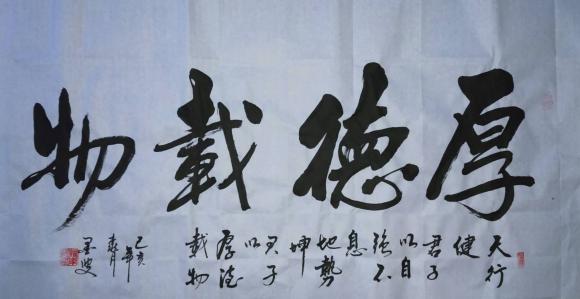 厚德載物
天行
健
君子
以自
強不
息
地勢
坤
君子
以
厚德
載物
己亥
年
墨叟